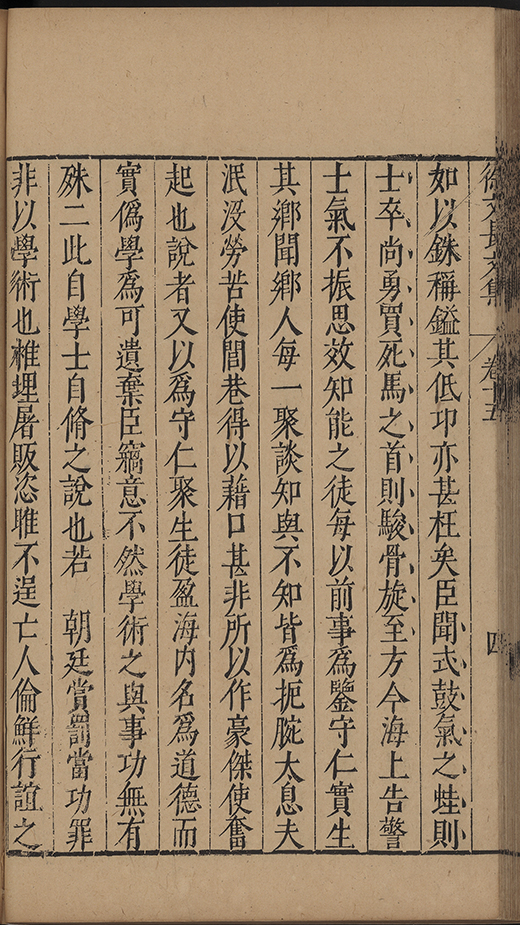 徐文長文集 卷十五 四
如以銖稱鎰其低卬亦甚枉矣臣聞式鼓氣之蛙則
士卒尚勇買死馬之首則駿骨旋至方今海上告警
士氣不振思效知能之徒每以前事爲鑒守仁實生
其鄉聞鄉人每一聚談知與不知皆爲扼腕太息夫
泯沒勞苦使閭巷得以藉口甚非所以作豪傑使奮
起也說者又以爲守仁聚生徒盈海内名爲道德而
實僞學爲可遺棄臣竊意不然學術之與事功無有
殊二此自學士自脩之說也若 朝廷賞罰當功罪
非以學術也椎埋屠販恣睢不逞亡人倫鮮行誼之